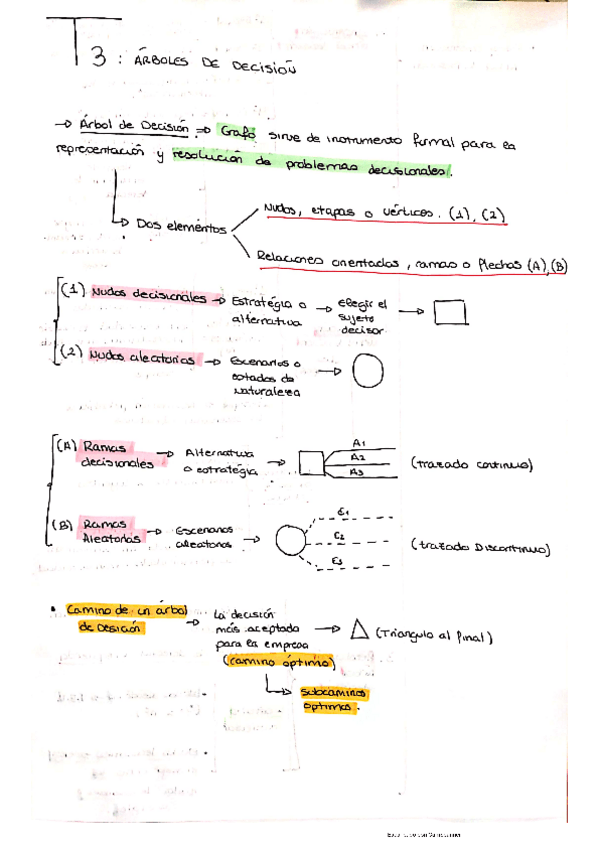 T3: ÁRBOLES DE DECISIÓN
→ Árbol de Decisión ⇒ Grafo sirve de instrumento formal para la
representación y resolución de problemas decisionales.
Dos elementos
Nudos, etapas o vértices. (1), (2)
Relaciones orientadas, ramas o flechas (A),(B)
(1) Nudos decisionales → Estratégia o
alternativa
→ elegir el
sujeto
decisor
→
(2) Nudos aleatorios → Escenarios o
estados de
naturaleza
→
(A) Ramas
decisionales
→ Alternativa
o estratégia
→
A1
A2
A3
(trazado continuo)
(B) Ramas
Aleatorias
→ Escenarios
aleatorios
→
E1
E2
E3
(trazado Discontinuo)
• Camino de un árbol
de Desición
→ La decisión
más aceptada
para la empresa
(camino óptimo)
→ △ (Triangulo al final)
Subcaminos
óptimos.
Escaneado con CamScanner